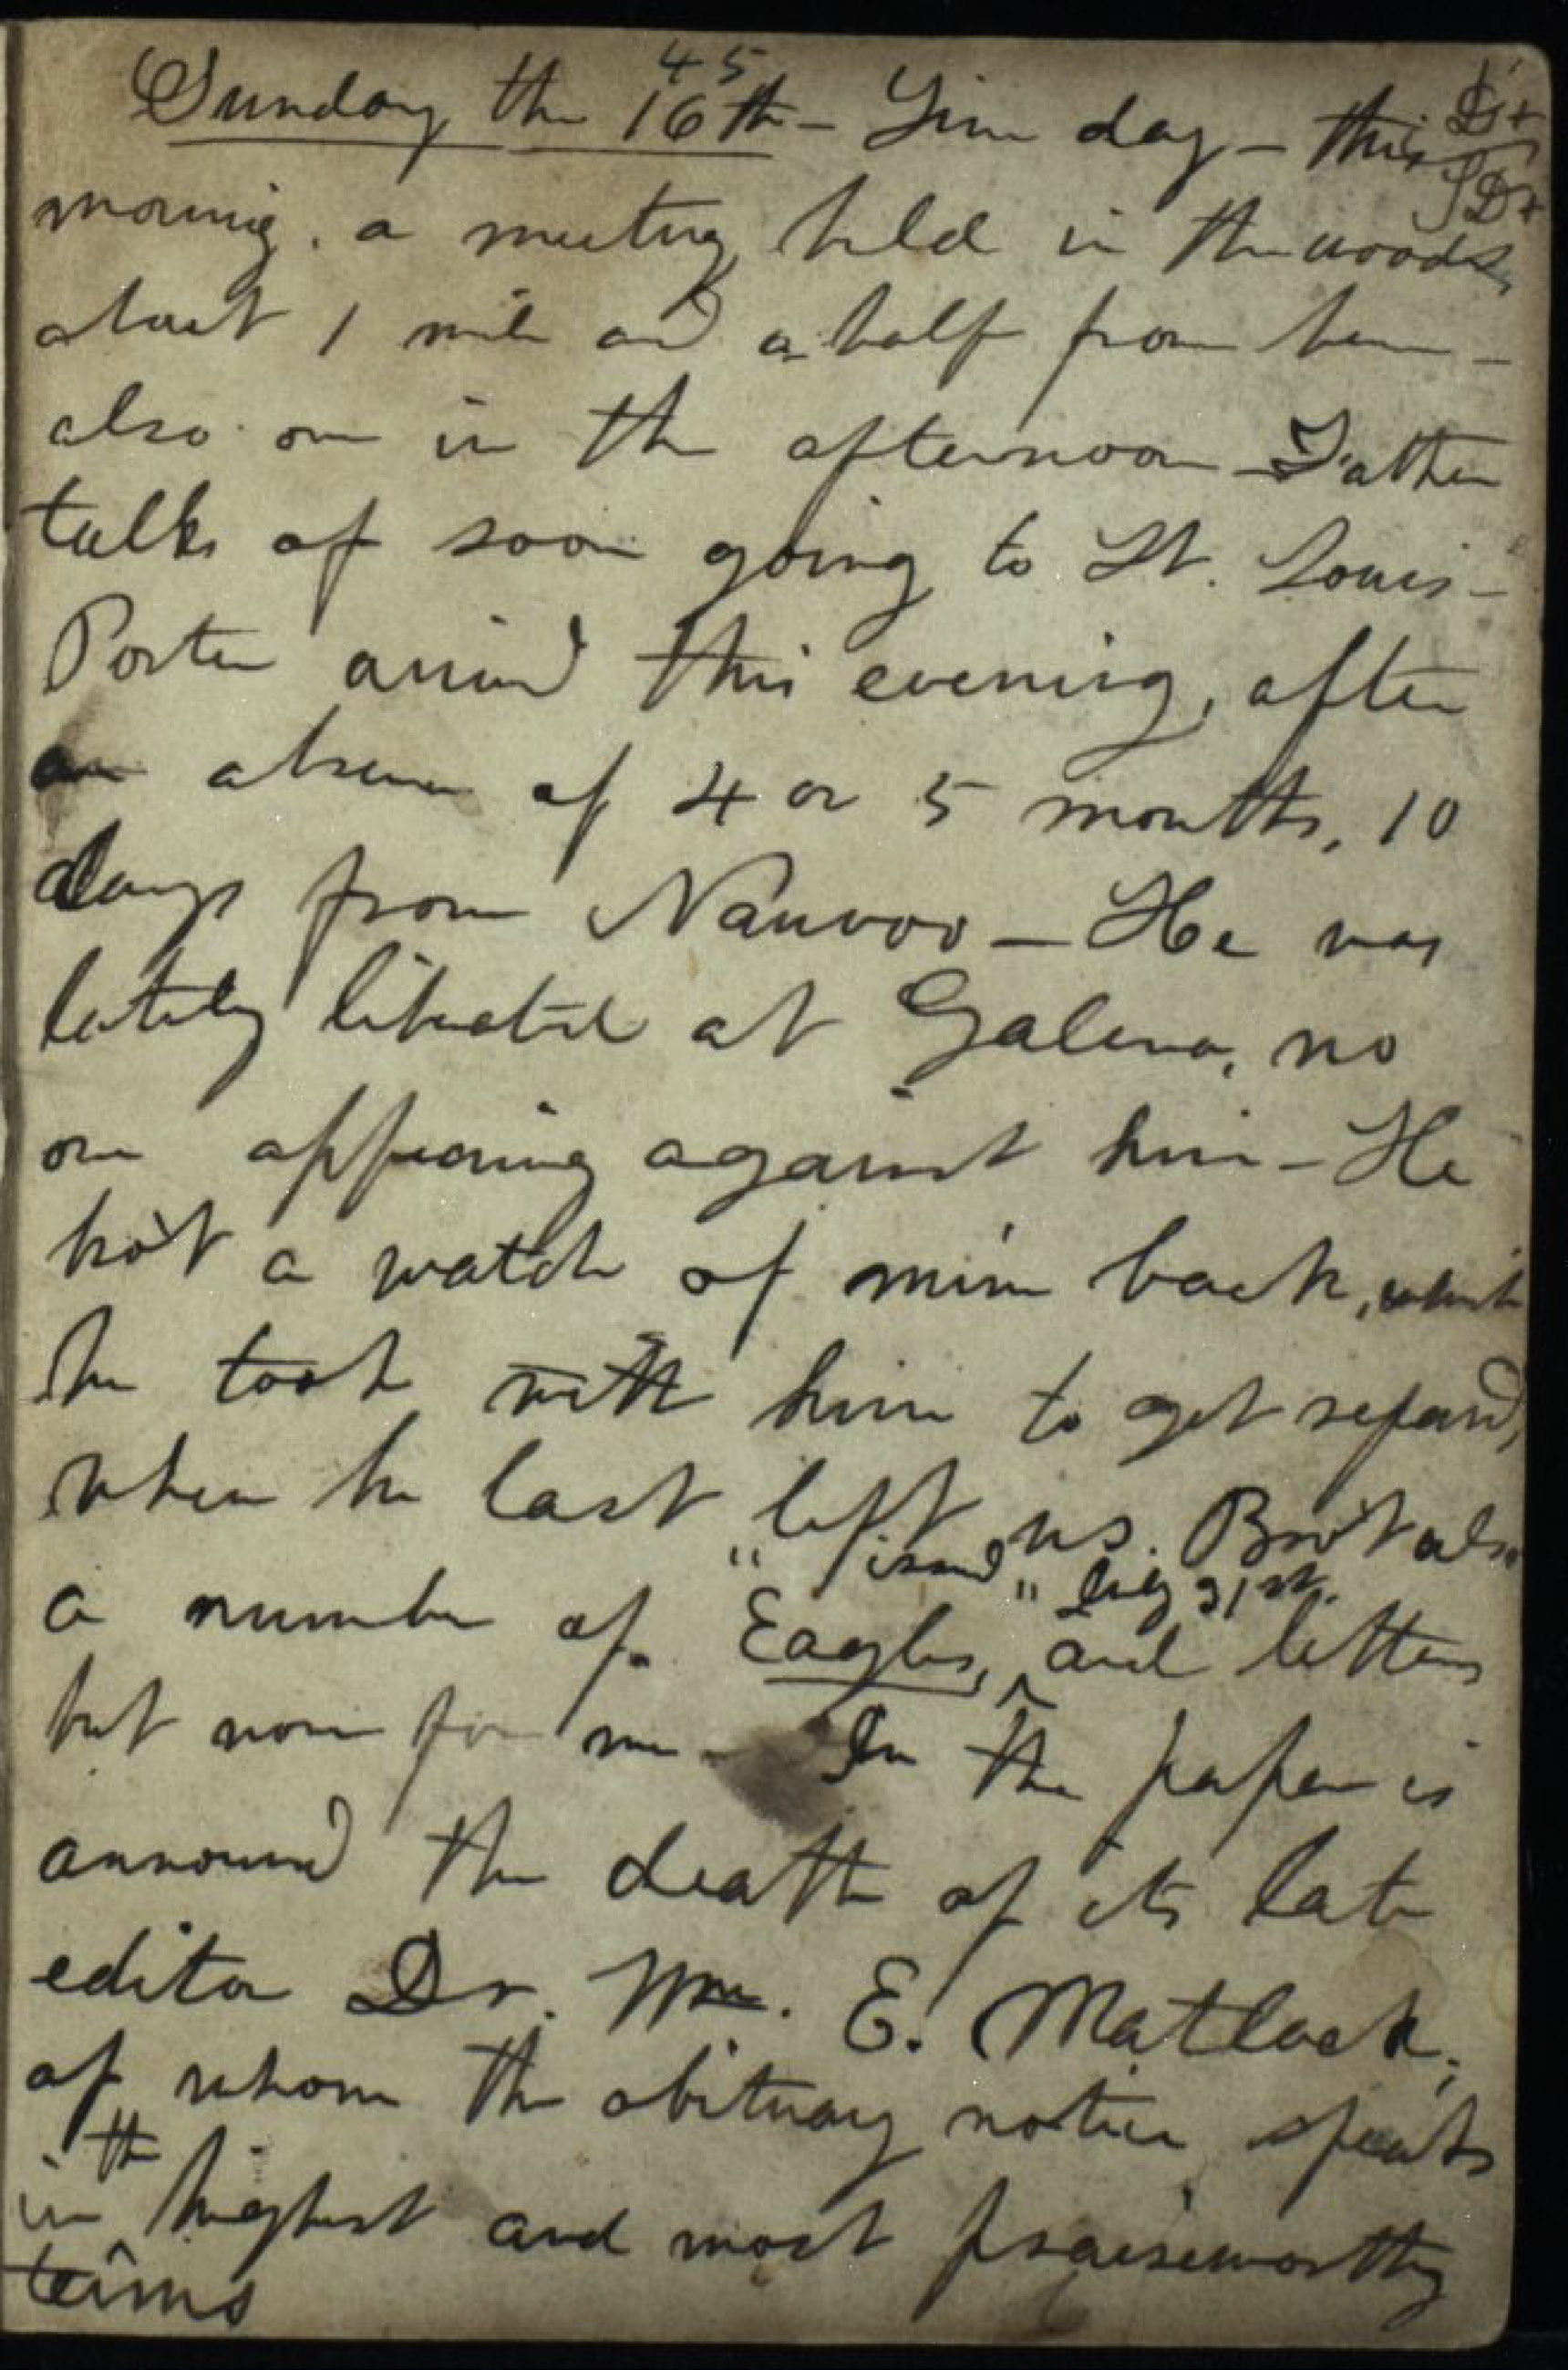 45
Sunday the 16th - Fine day - this
morning, a meeting held in the woods
about 1 mile and a half from here -
also one in the afternoon - Father
talks of soon going to St. Louis -
Porter arrived this evening, after
an absence of 4 or 5 months, 10
days from Nauvoo - He was
lately liberated at Galena, no
one appearing against him - He
bro't a watch of mine back, which
he took with him to get repaired,
when he last left us. Bro't also
" issued " July 31st.
a number of Eagles, ^ and letters
but none for me - In the paper is
announced the death of its late
editor Dr. Wm. E. Matlack,
of whom the obituary notice speaks
the
in ^ highest and most praiseworthy
terms